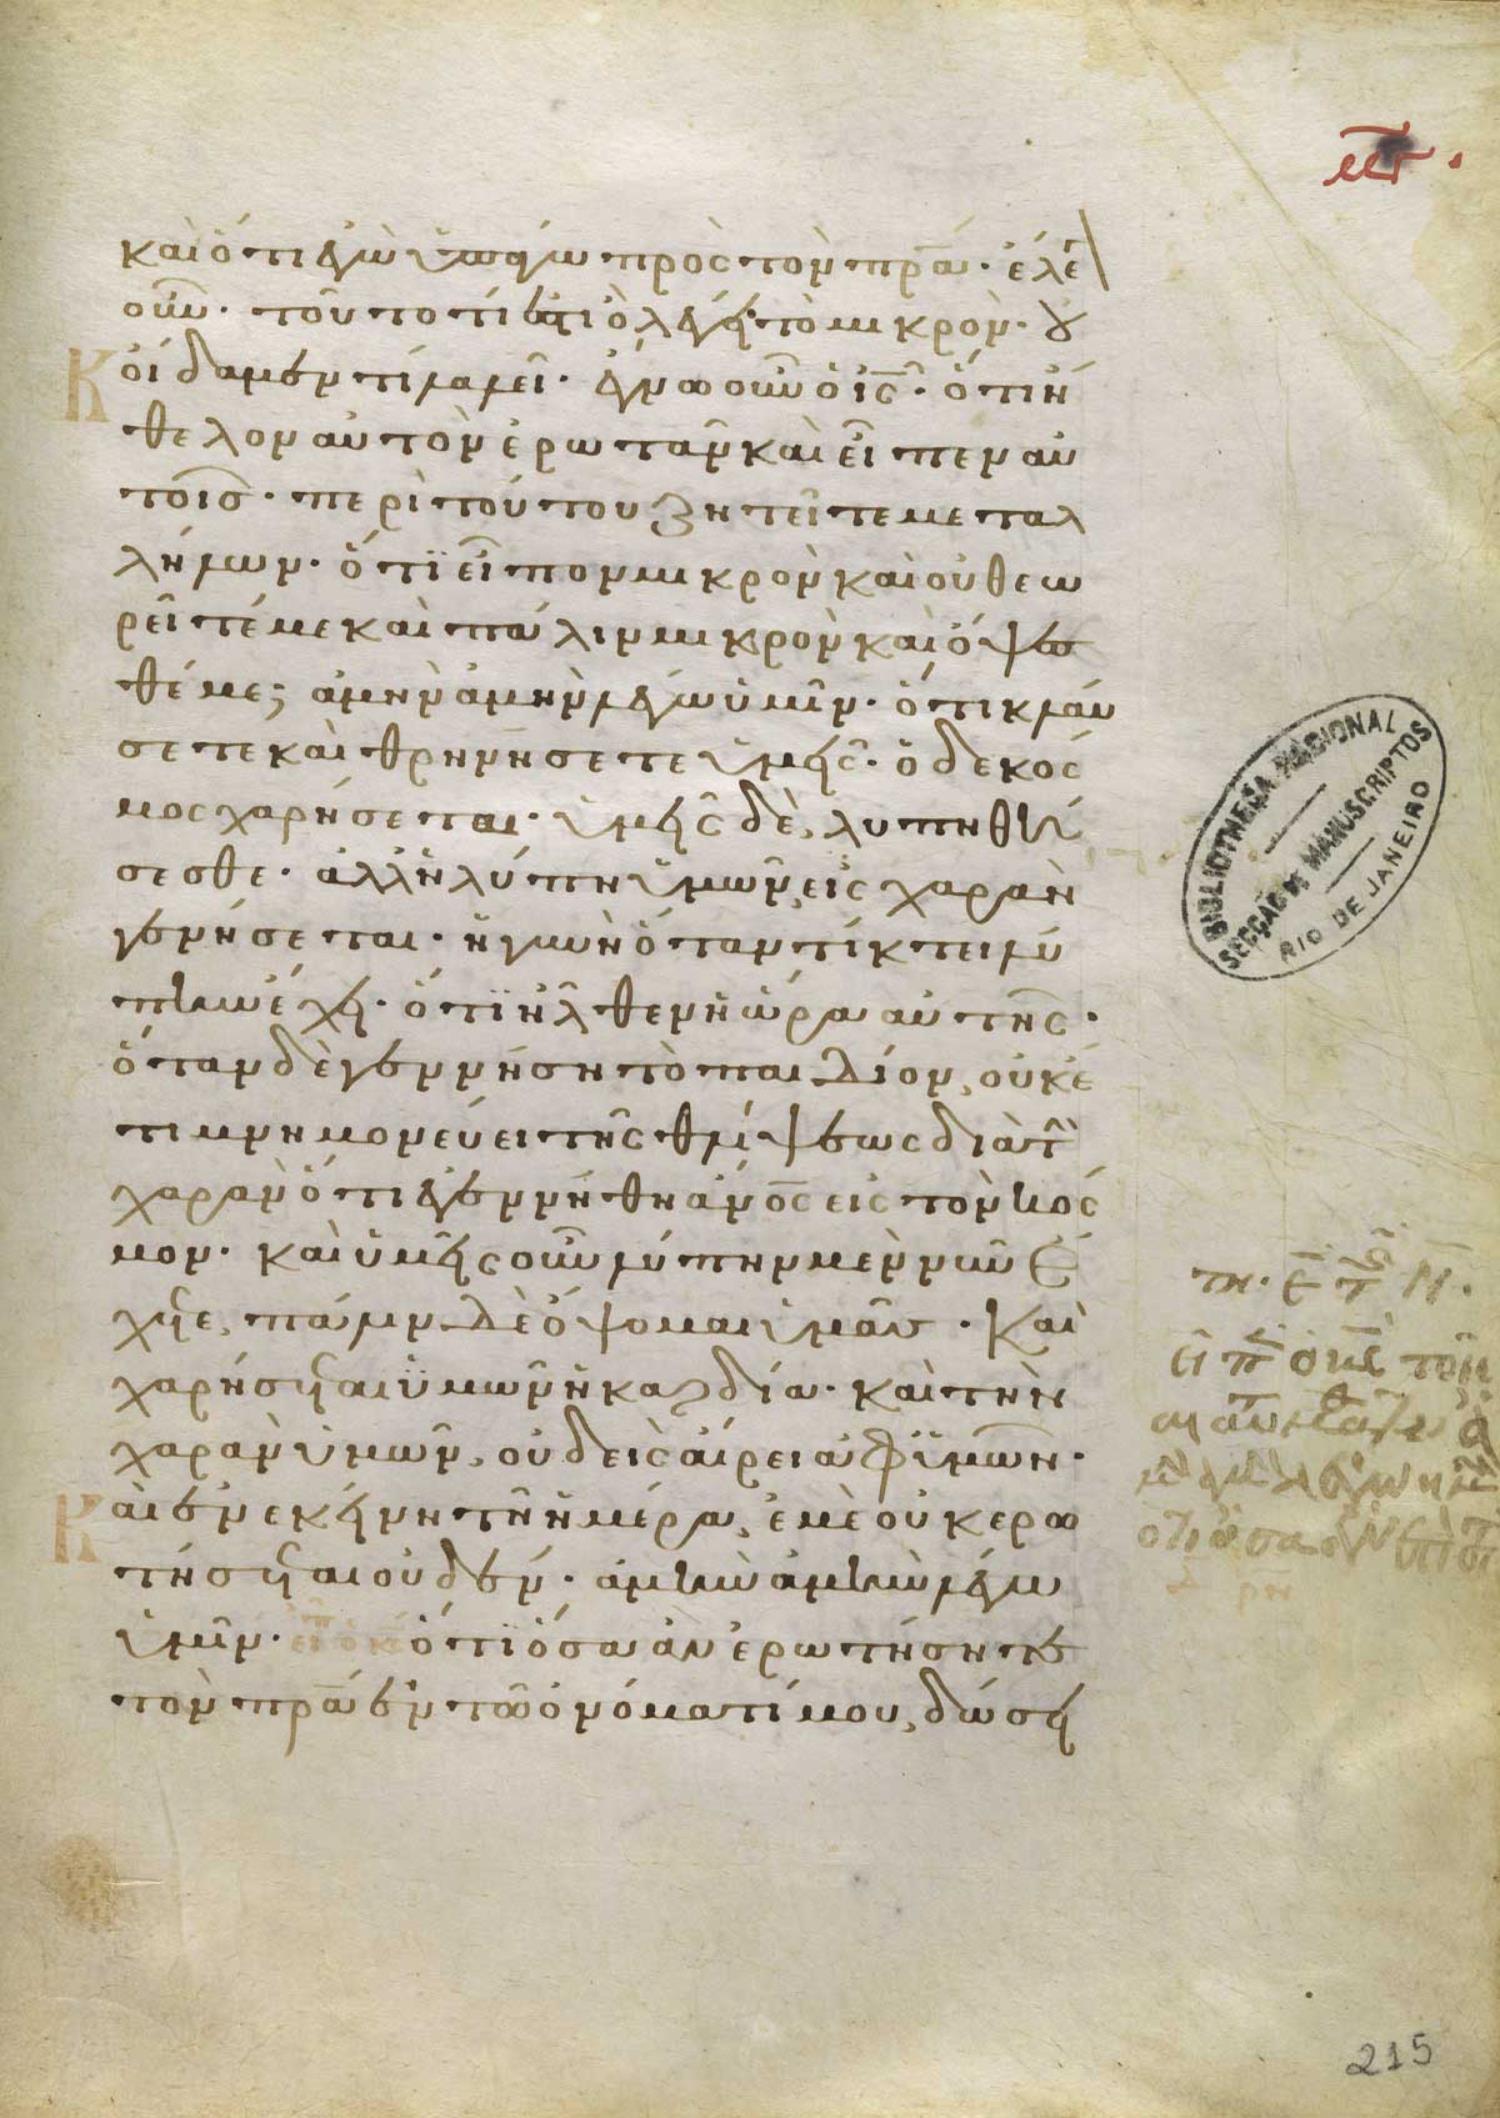 καὶ ὅτι ἐγὼ ὑπάγω πρὸς τὸν πρ̅α· ἔλε
οὖν· τοῦτο τί ἐστι ὃ λέγει τὸ μικρόν· οὐ
κ οἴδαμεν τί λαλεῖ· ἔγνω οὖν ὁ ι̅ς· ὅτι ἤ
θελον αὐτὸν ἐρωτᾶν καὶ εἶπεν αὐ
τοῖς· περὶ τούτου ζητεῖτε μετ ἀλ
λήλων· ὅτι εἶπον μικρὸν καὶ οὐ θεω
ρεῖτέ με καὶ πάλιν μικρὸν καὶ ὄψεσ
θέ με; ἀμὴν ἀμὴν λέγω ὑμῖν· ὅτι κλαύ
σετε καὶ θρηνήσετε ὑμεῖς· ὁ δὲ κόσ
μος χαρήσεται· ὑμεῖς δὲ, λυπηθή
σεσθε· ἀλλ ἡ λύπη ὑμῶν, εἰς χαρὰν
γενήσεται· ἡ γυνὴ ὅταν τίκτει λύ
πην ἔχει· ὅτι ἦλθεν ἡ ὥρα αὐτῆς·
ὅταν δὲ γεννήση τὸ παιδίον, οὐκέ
τι μνημονεύει τῆς θλίψεως διὰ τ
χαρὰν ὅτι ἐγεννήθη ἄν̅ος εἰς τὸν κόσ
μον· καὶ ὑμεῖς οὖν λύπην μὲν νῦν ἔ
χετε, πάλιν δὲ ὄψομαι ὑμᾶς· καὶ
χαρήσεται ὑμῶν ἡ καρδία· καὶ τὴν
χαρὰν ὑμῶν, οὐδεὶς αἴρει ἀφ ὑμῶν·
Καὶ ἐν ἐκείνη τῆ ἡμέρα, ἐμὲ οὐκ ἐρω
τήσεται οὐδέν· ἀμὴν ἀμὴν λέγω
ὑμῖν· ὅτι ὅσα ἂν ἐρωτήσητε
τὸν πρ̅α ἐν τῶ ὀνόματί μου, δώσει
BIBLIOTHECA NACIONAL
SECÇÃO DE MANUSCRIPTOS
RIO DE JANEIRO
215